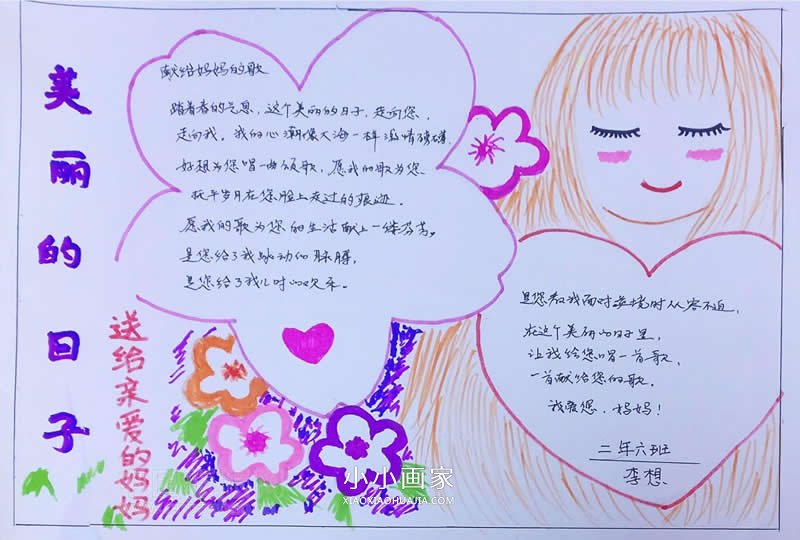 美丽的日子
送给亲爱的妈妈
献给妈妈的歌
踏着春的气息，这个美丽的日子，走向您，
走向我。我的心潮像大海一样激情磅礴，
好想为您唱一曲颂歌，愿我的歌为您
抚平岁月在您脸上走过的痕迹。
愿我的歌为您的生活献上一缕芬芳。
是您给了我跳动的脉搏，
是您给了我儿时的欢乐。
是您教我面对逆境时从容不迫，
在这个美丽的日子里，
让我给您唱一首歌，
一首献给您的歌。
我爱您，妈妈！
二年六班
李想
小小画家
XIAOXIAOHUAJIA.COM